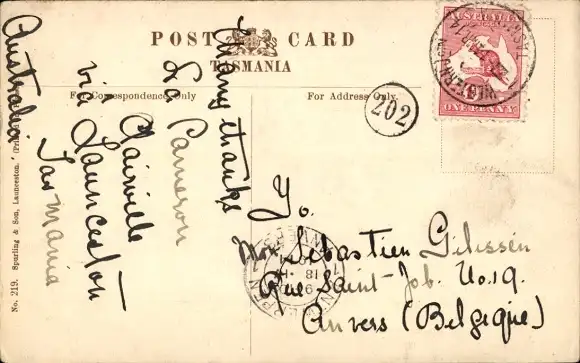 POST CARD
TASMANIA
For Correspondence Only
For Address Only.
Many thanks
Cameron
Clairville
via Launceston
Tasmania
Australia
No. 219. Spurling & Son, Launceston.
202
AUSTRALIA
ONE PENNY
To.
Mon. Sebastien Gilissen
Rue Saint-Job. No.19.
Anvers (Belgique)
ANTWERPEN
18